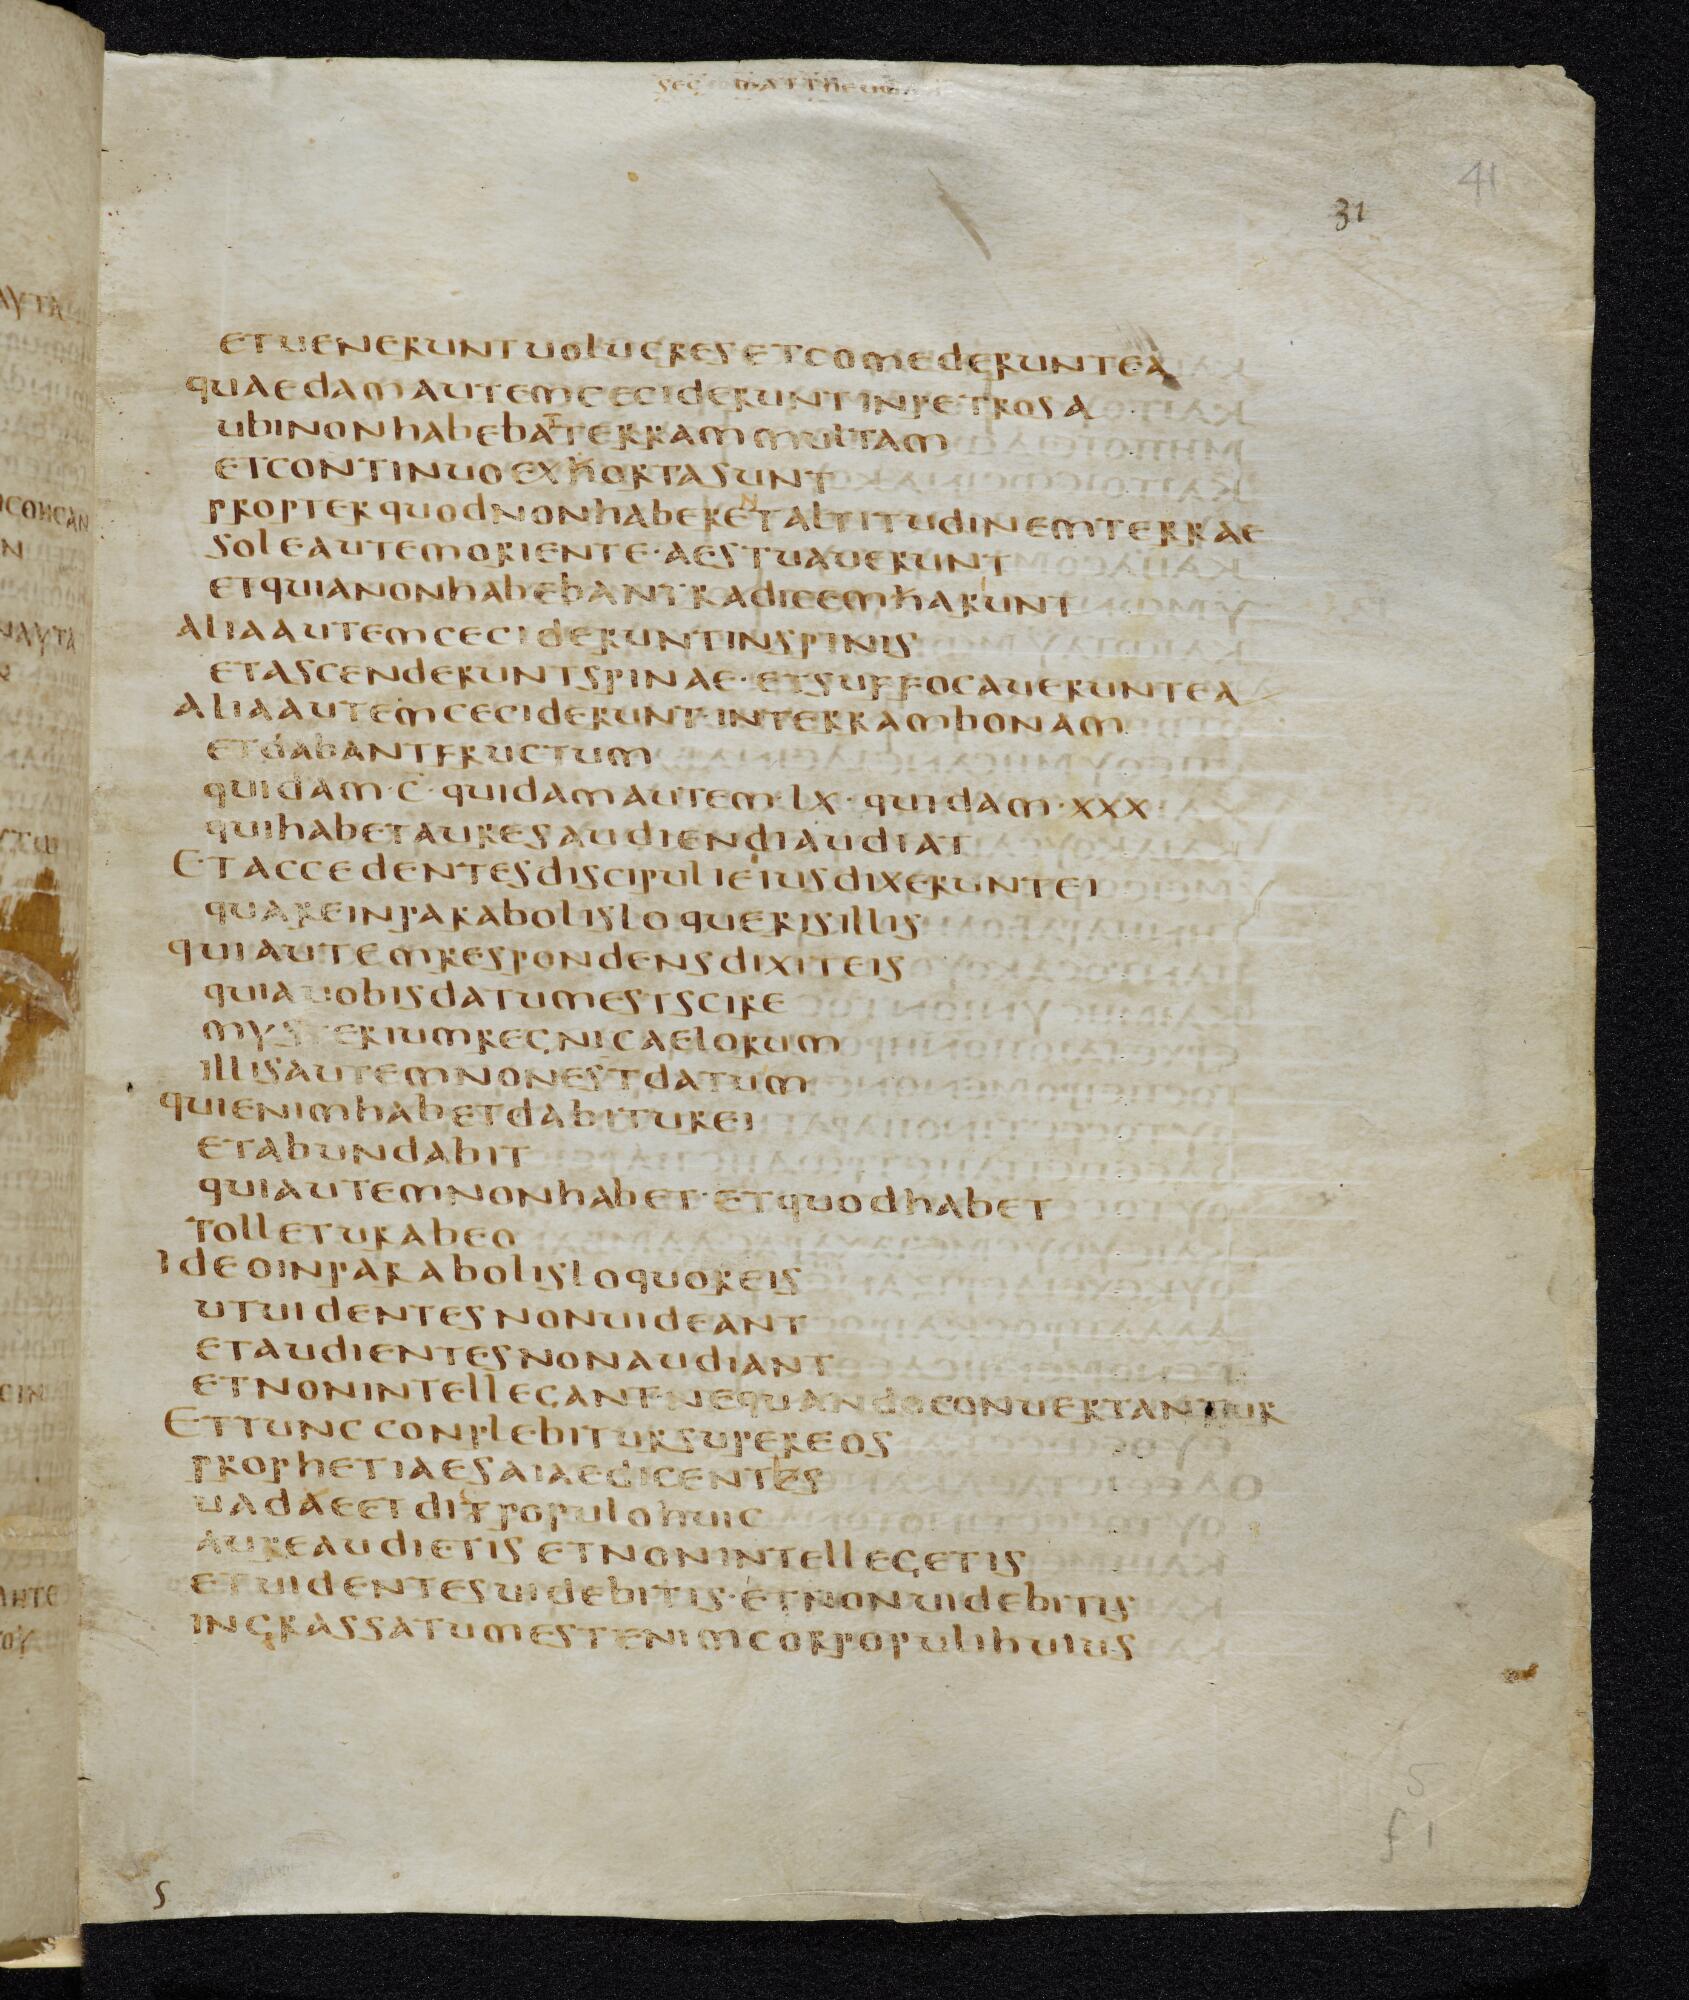 sec mattheum
41
31
etuenerunt uolucres et comederunt ea
quaedam autem ceciderunt in petrosa
ubi non habebat terram multam
et continuo exhorta sunt
propter quod non haberent altitudinem terrae
sole autem oriente · aestuauerunt
et quia non habebant radicem harunt
alia autem ceciderunt in spinis
et ascenderunt spinae · et suffocauerunt ea
alia autem ceciderunt in terram bonam
et dabant fructum
quidam · c · quidam autem · lx · quidam · xxx ·
qui habet aures audiendi audiat
Et accedentes discipuli eius dixerunt ei
quare in parabolis loqueris illis
qui autem respondens dixit eis
quia uobis datum est scire
mysterium regni caelorum
illis autem non est datum
qui enim habet dabitur ei
et abundabit
qui autem non habet · et quod habet
tolletur ab eo
Ideo in parabolis loquor eis
ut uidentes non uideant
et audientes non audiant
et non intellegant ne quando conuertantur
Et tunc conplebitur super eos
prophetia esaiae dicentes
uadae et dit populo huic
aure audietis et non intellegetis
et uidentes uidebitis · et non uidebitis
ingrassatum est enim cor populi huius
5
f 1